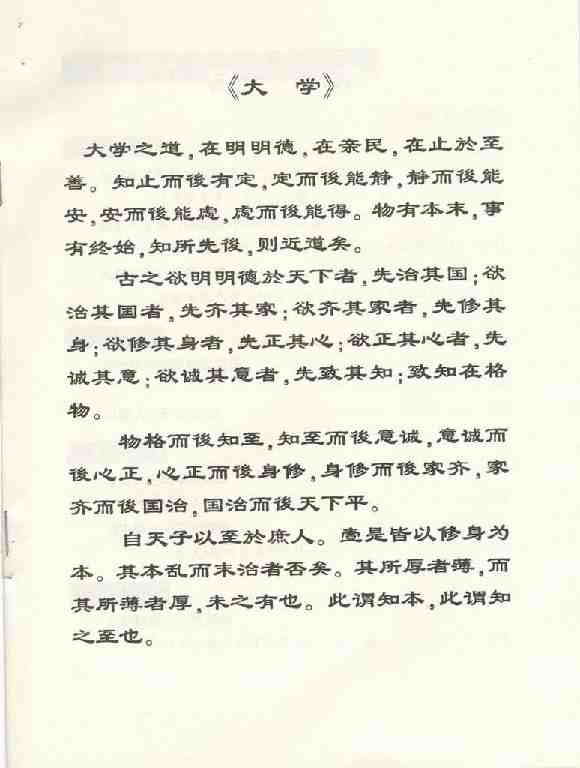 《大 学》
大学之道,在明明德,在亲民,在止於至
善。知止而後有定,定而後能静,静而後能
安,安而後能虑,虑而後能得。物有本末,事
有终始,知所先後,则近道矣。
古之欲明明德於天下者,先治其国;欲
治其国者,先齐其家;欲齐其家者,先修其
身;欲修其身者,先正其心;欲正其心者,先
诚其意;欲诚其意者,先致其知;致知在格
物。
物格而後知至,知至而後意诚,意诚而
後心正,心正而後身修,身修而後家齐,家
齐而後国治,国治而後天下平。
自天子以至於庶人。壹是皆以修身为
本。其本乱而末治者否矣。其所厚者薄,而
其所薄者厚,未之有也。此谓知本,此谓知
之至也。